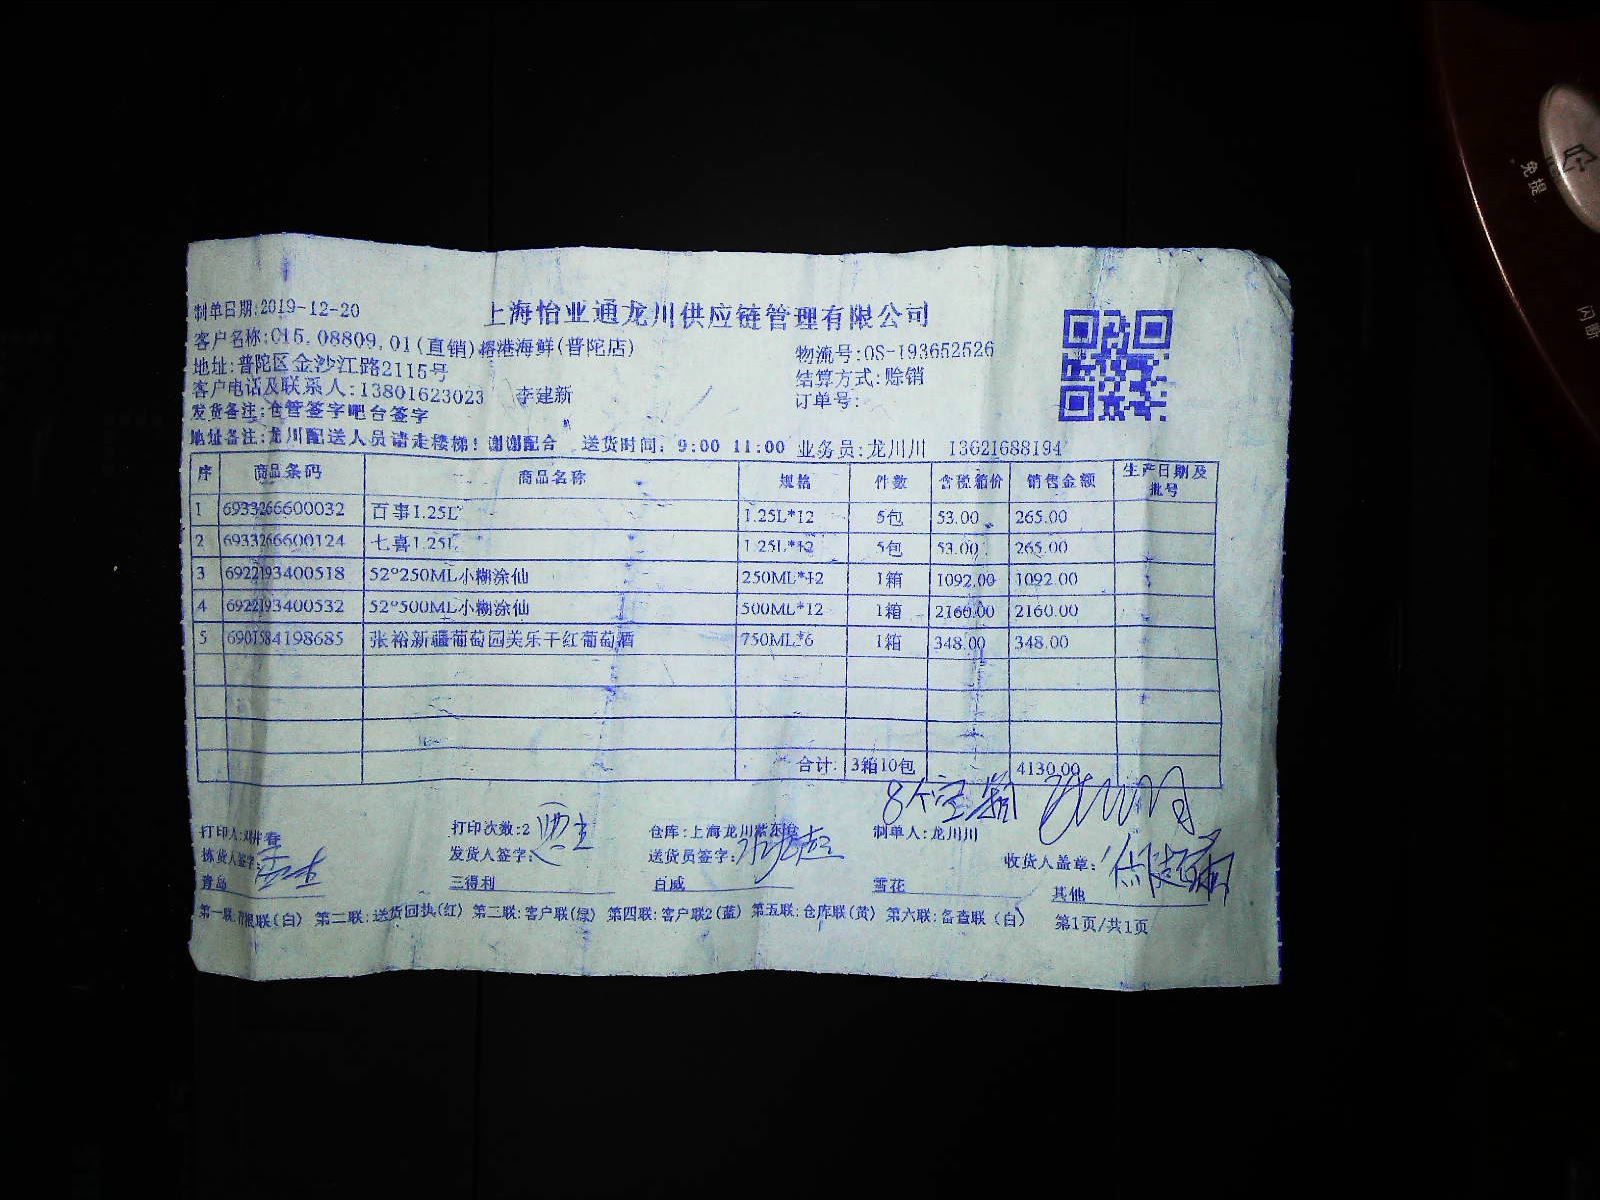 制单日期:2019-12-20 上海怡业通龙川供应链管理有限公司
客户名称:C15.08809.01(直销)榕港海鲜(普陀店) 物流号:OS-193652526
地址:普陀区金沙江路2115号 结算方式:赊销
客户电话及联系人:13801623023 李建新 订单号:
发货备注:仓管签字吧台签字
地址备注:龙川配送人员请走楼梯!谢谢配合 送货时间:9:00 11:00 业务员:龙川川 13621688194
序 商品条码 商品名称 规格 件数 含税箱价 销售金额 生产日期及批号
1 6933266600032 百事1.25L 1.25L*12 5包 53.00 265.00
2 6933266600124 七喜1.25L 1.25L*12 5包 53.00 265.00
3 6922193400518 52°250ML小糊涂仙 250ML*12 1箱 1092.00 1092.00
4 6922193400532 52°500ML小糊涂仙 500ML*12 1箱 2160.00 2160.00
5 6901584198685 张裕新疆葡萄园美乐干红葡萄酒 750ML*6 1箱 348.00 348.00
合计: 3箱10包 4130.00
8个空箱
打印人: 打印次数:2 仓库:上海龙川 制单人:龙川川
拣货人签字: 发货人签字: 送货员签字: 收货人盖章:
青岛 三得利 百威 雪花 其他
第一联:存根联(白) 第二联:送货回执(红) 第三联:客户联(绿) 第四联:客户联2(蓝) 第五联:仓库联(黄) 第六联:备查联(白) 第1页/共1页
免提
闪断